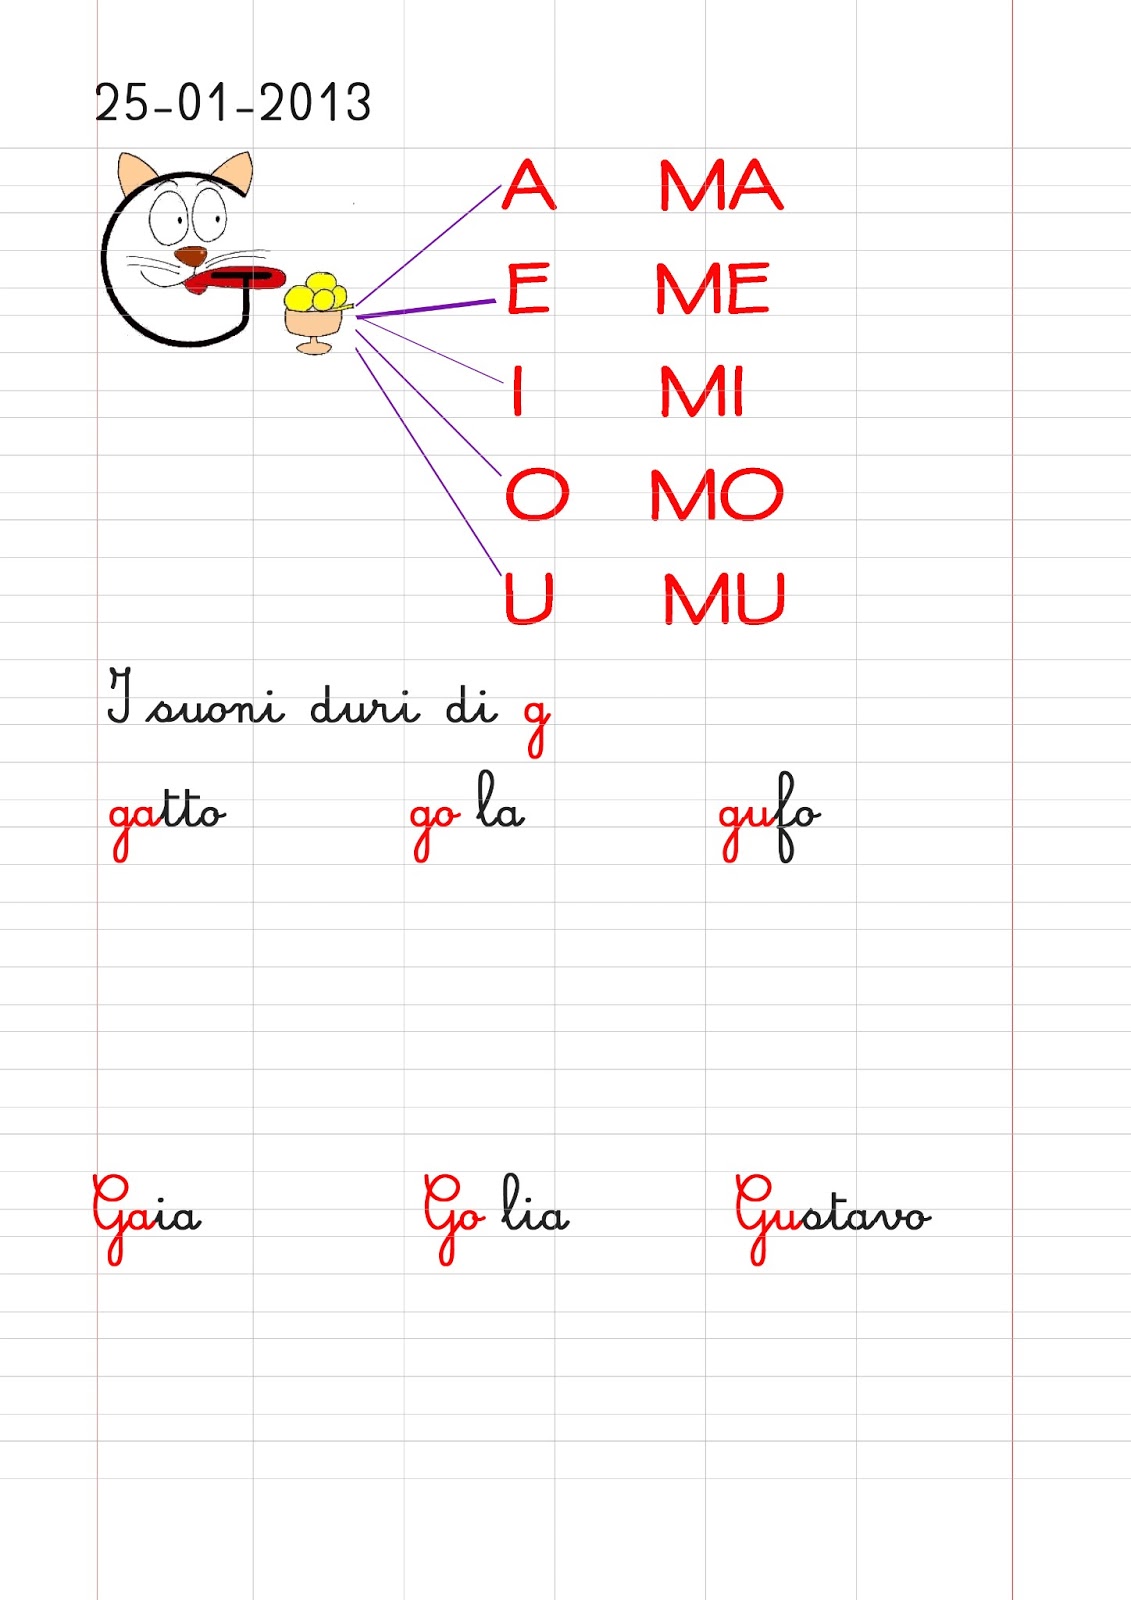 25-01-2013
A MA
E ME
I MI
O MO
U MU
I suoni duri di g
gatto go la gufo
Gaia Go lia Gustavo